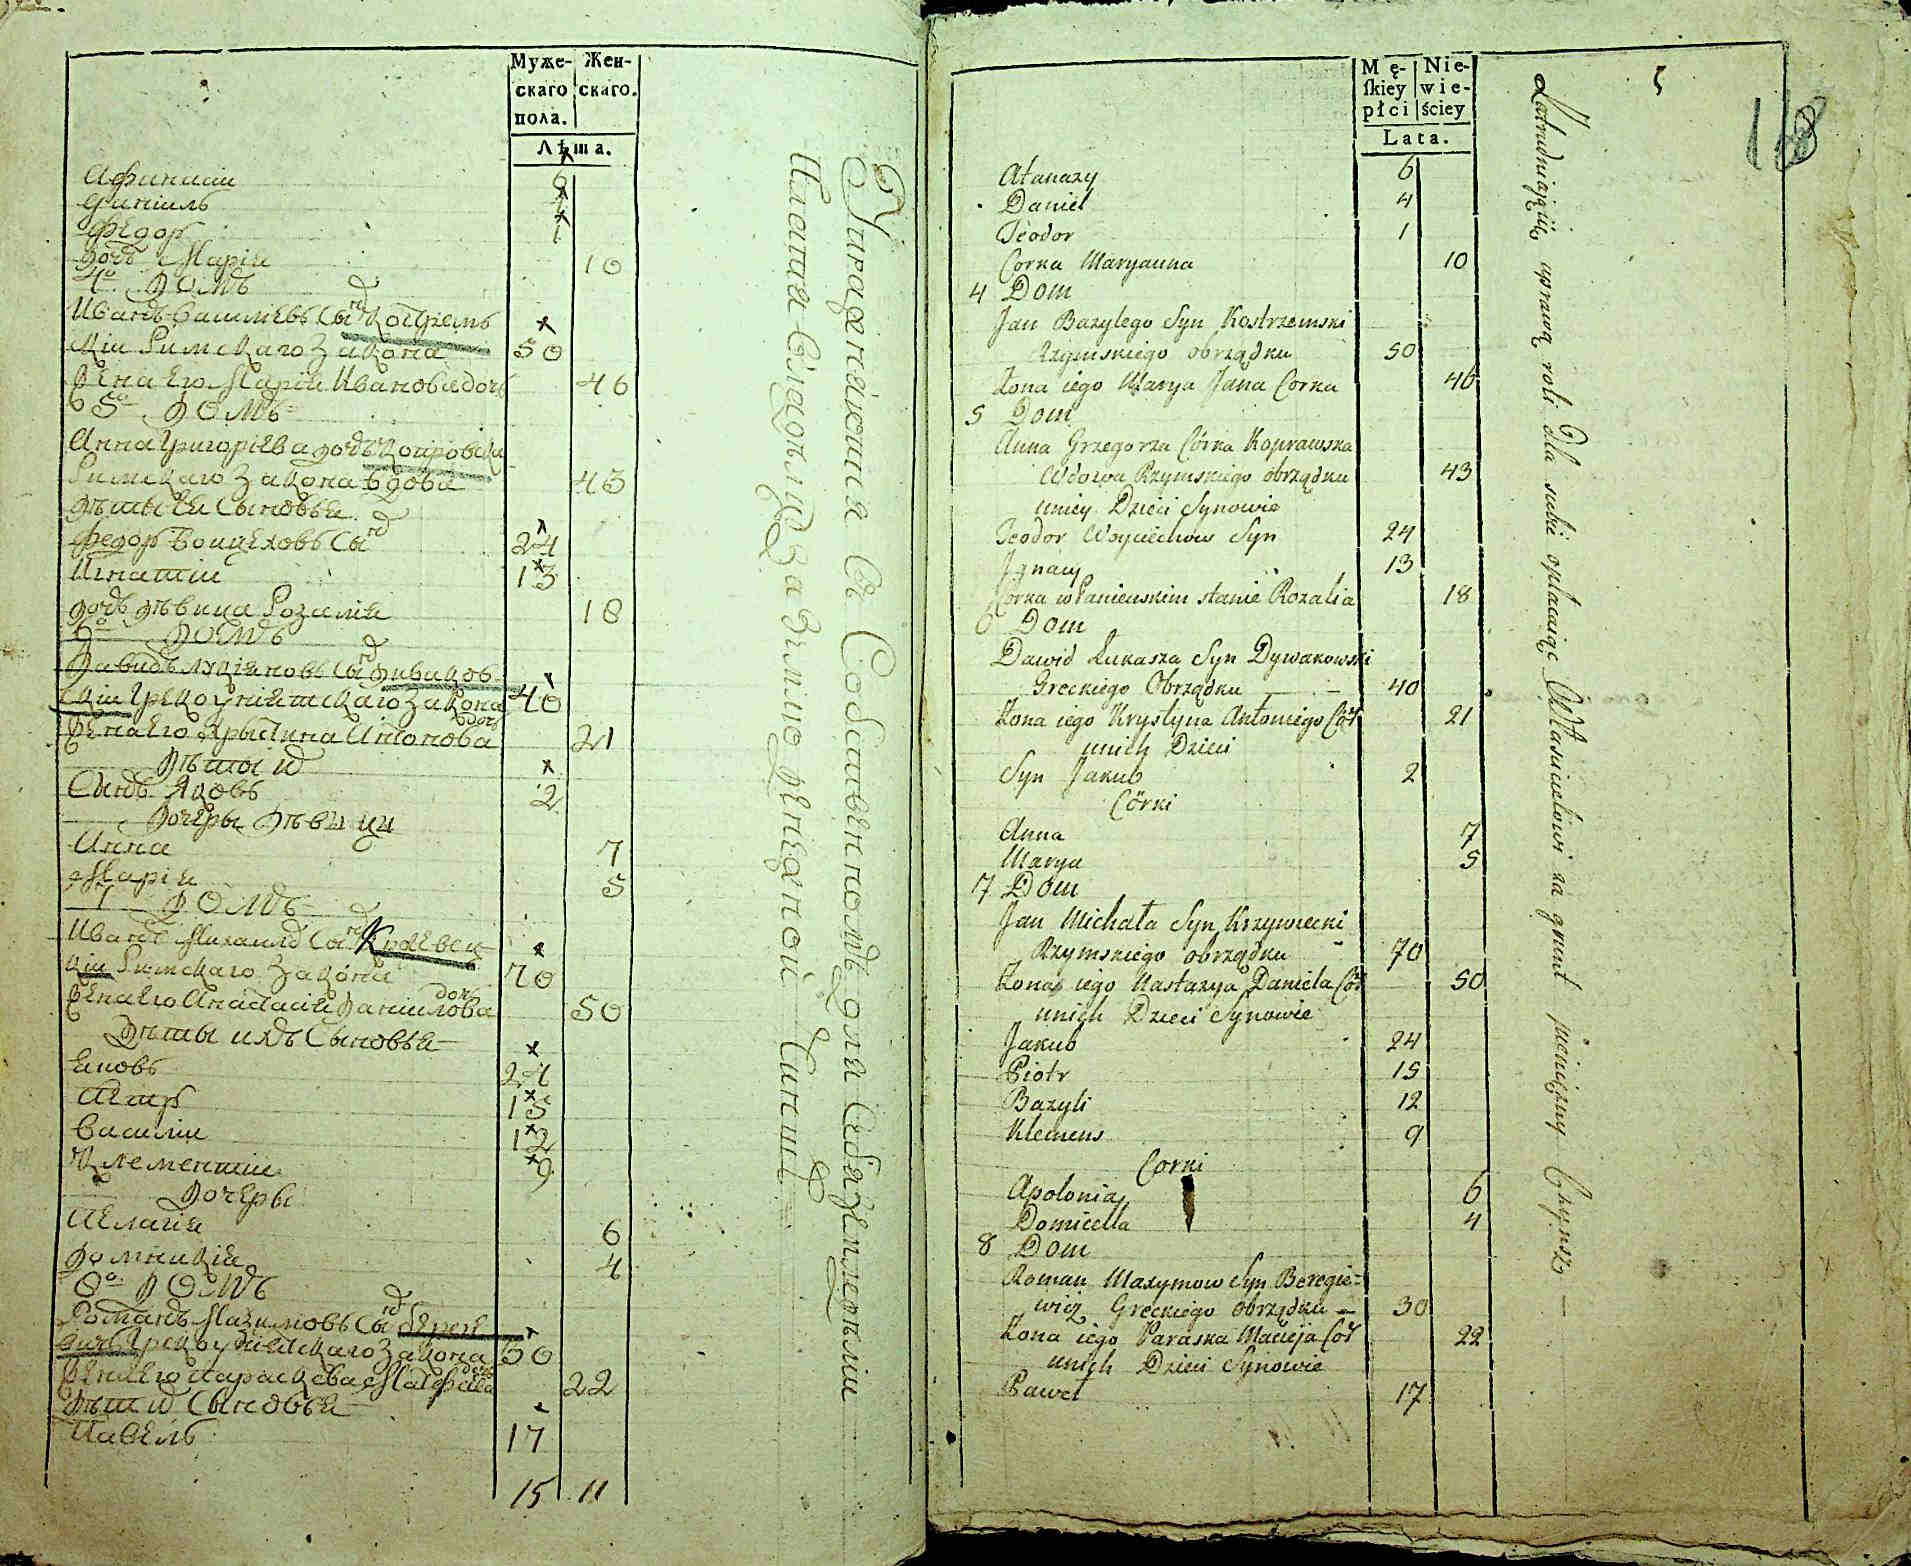 Муже- Жен-
скаго скаго.
пола.
Лѣта.
Афанасій 6
Даніилъ 4
Федор 1
дочь Марія 10
4о Домъ
Иванъ Василіевъ Сынъ Костремъ
скій Римскаго Закона 50
Жена Его Марія Иванова дочь 46
5о Домъ
Анна Григоріева дочь
Римскаго Закона вдова 43
Дѣты Ея Сыновья
Федор Войцеховъ Сынъ 24
Игнатій 13
дочь дѣвица Розалія 18
6о Домъ
Давидъ Лукіяновъ Сынъ Диваков
скій Грекоуніятскаго Закона 40
Жена Его Крыстина Антонова дочь 21
Дѣты их
Сынъ Яковъ 2
Дочеры Дѣвицы
Анна 7
Марія 5
7 Домъ
Иванъ Михаилов Сынъ Кривец
кій Римскаго Закона 70
Жена Его Анастасія Даніилова доч 50
Дѣты ихъ Сыновья
Яковъ 24
Петръ 15
Василій 12
Клементій 9
Дочеры
Пелагія 6
Домникія 4
8о Домъ
Романъ Максимовъ Сынъ Береге
вичъ Грекоуніятскаго Закона 30
Жена Его Параскева Матфеева дочь 22
Дѣты их Сыновья
Павелъ 17
15 11
Упражняются въ Собственномъ для Себя земледѣліи
Платя Владѣльцу за землю денежной Чинш
Mę- Nie-
skiey wie-
płci ściey
Lata.
118
Atanazy 6
Daniel 4
Teodor 1
Corka Maryanna 10
4 Dom
Jan Bazylego Syn Kostrzemski
Rzymskiego obrządku 50
Żona iego Marya Jana Corka 46
5 Dom
Anna Grzegorza Córka Koprawska
Wdowa Rzymskiego obrządku 43
uniey Dzieci Synowie
Teodor Woyciechow Syn 24
Ignacy 13
Corka w Panieńskim stanie Rozalia 18
6 Dom
Dawid Łukasza Syn Dywakowski
Greckiego Obrządku 40
Żona iego Krystyna Antoniego Cór 21
unich Dzieci
Syn Jakub 2
Córki
Anna 7
Marya 5
7 Dom
Jan Michała Syn Krzywiecki
Rzymskiego obrządku 70
Żona iego Nastazya Daniela Cór 50
unich Dzieci Synowie
Jakub 24
Piotr 15
Bazyli 12
Klemens 9
Corki
Apolonia 6
Domicella 4
8 Dom
Roman Maxymow Syn Beregie-
wicz Greckiego obrządku 30
Żona iego Paraska Macieja Cor 22
unich Dzieci Synowie
Paweł 17
Zatrudniaią się uprawą roli dla siebie opłacaiąc Własicielowi za grunt pieniężny Czynsz